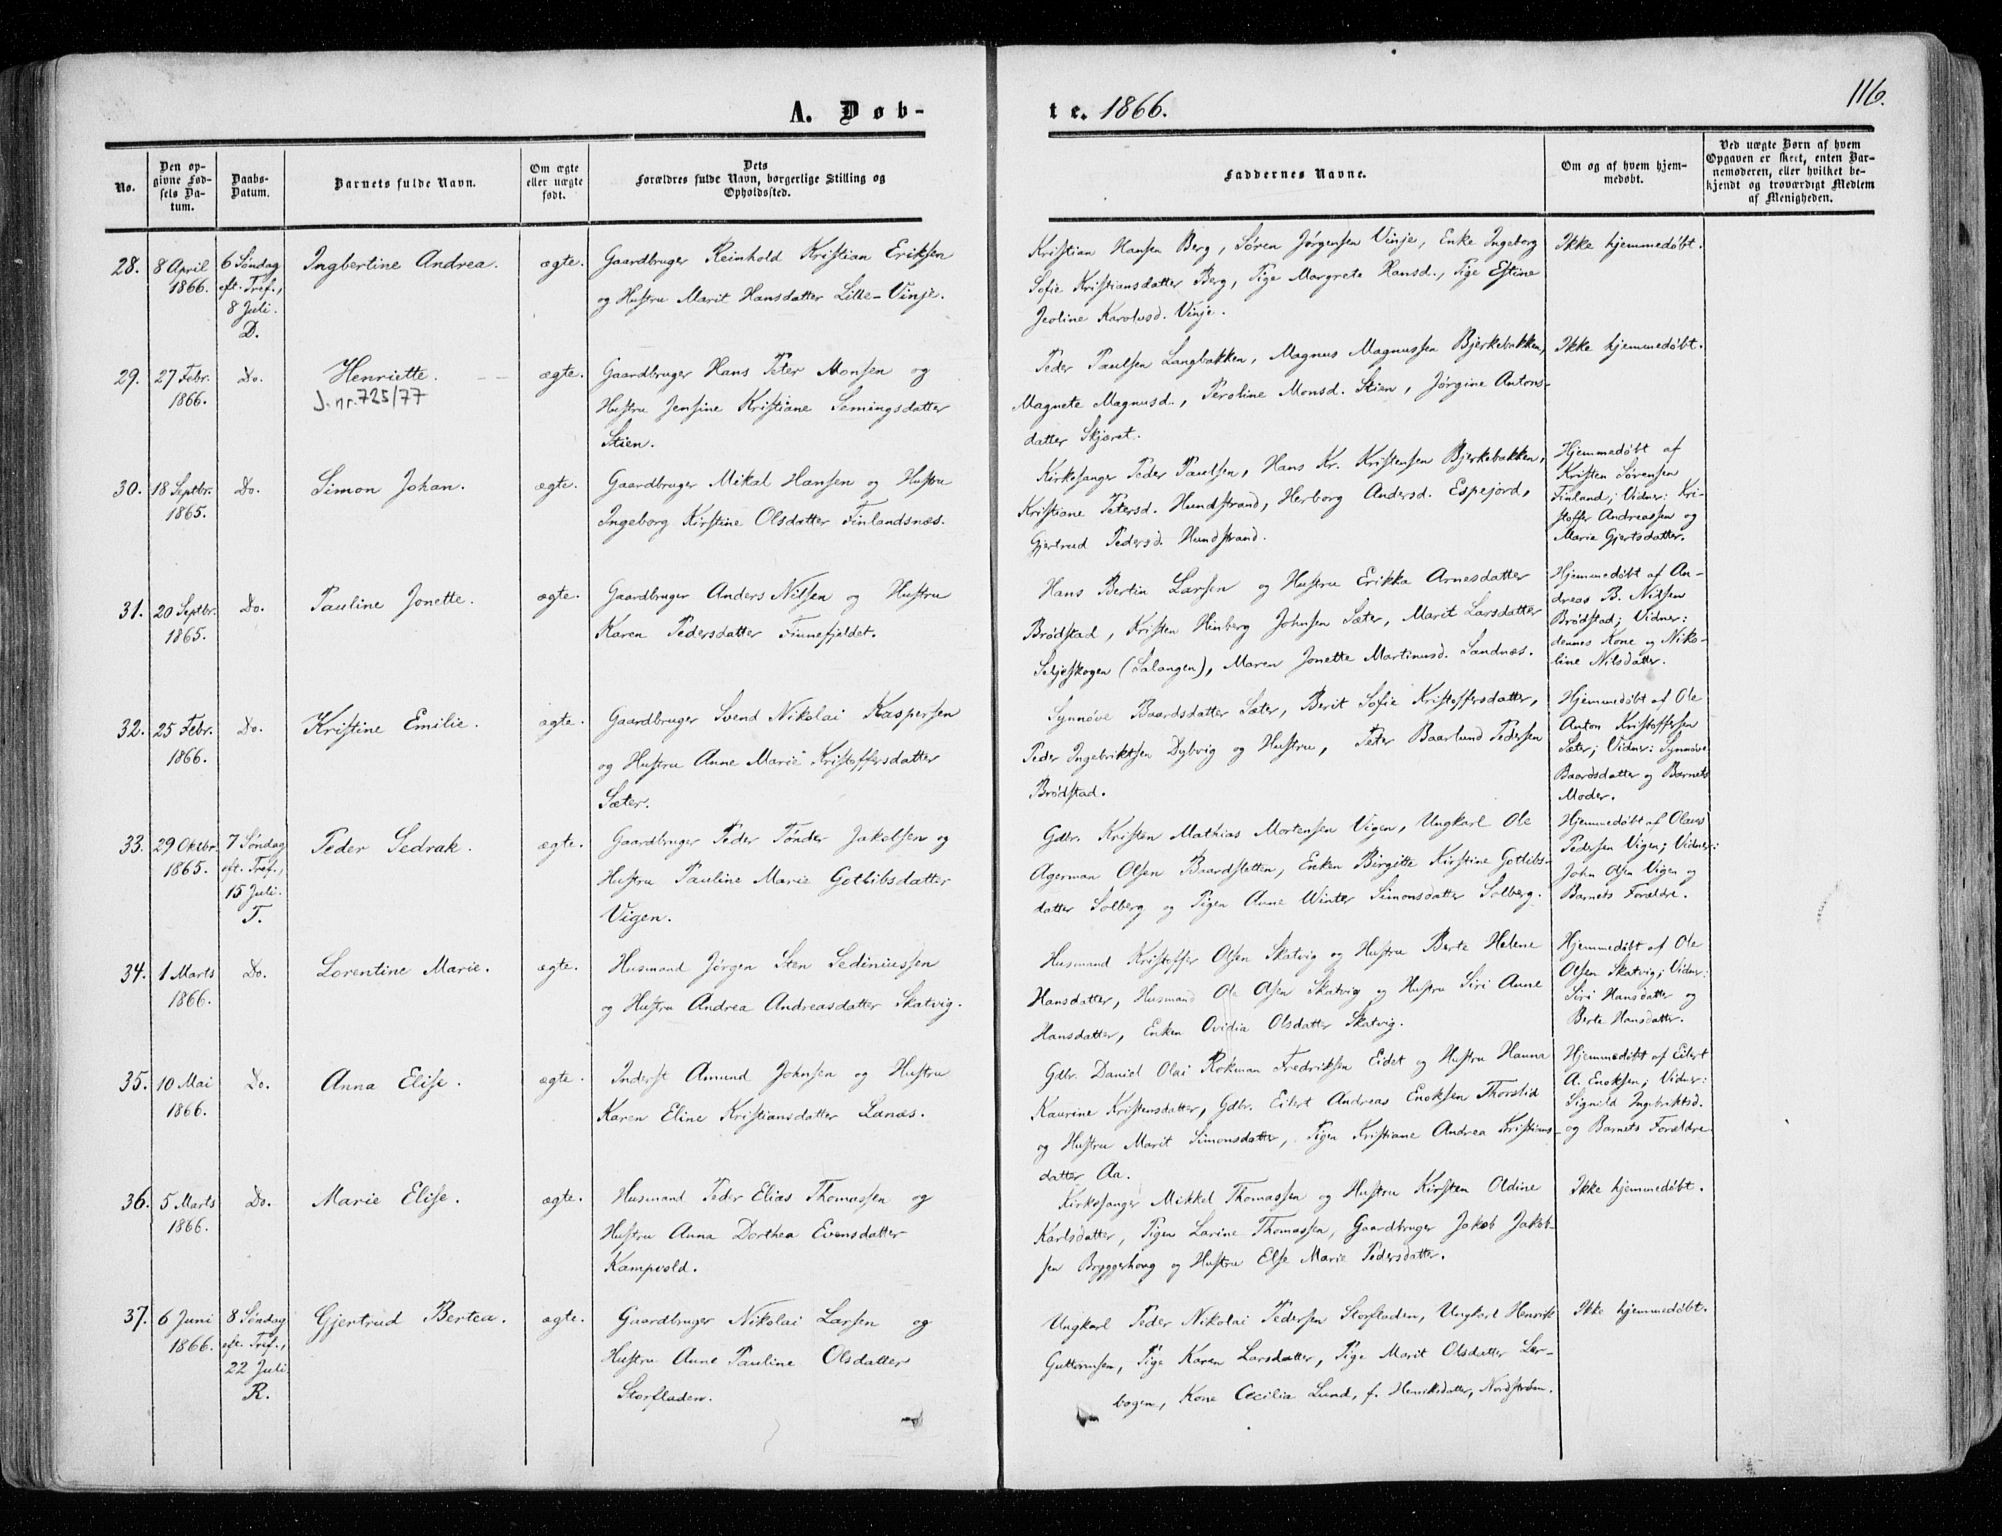 116.
A. Døb-
te. 1866.
No.
Den op-
givne Fød-
sels Da-
tum.
Daabs-
Datum.
Barnets fulde Navn.
Om ægte
eller uægte
født.
Dets
Forældres fulde Navn, borgerlige Stilling og
Opholdssted.
Faddernes Navne.
Om og af hvem hjem-
medøbt.
Ved uægte Børn af hvem
Opgaven er skeet, enten Bar-
nemoderen, eller hvilket be-
kjendt og troværdigt Medlem
af Menigheden.
28.
8 April
1866.
6 Søndag
eft. Tref.,
8 Juli.
D.
Ingbertine Andrea.
ægte.
Gaardbruger Reinhold Kristian Eriksen
og Hustru Marit Hansdatter Lille-Vinje.
Kristian Hansen Berg, Søren Jørgensen Vinje, Enke Ingeborg
Sofie Kristiansdatter Berg, Pige Margrete Hansd., Pige Estine
Jeoline Karolusd. Vinje.
Ikke hjemmedøbt.
29.
27 Febr.
1866.
Do.
Henriette.
J. nr. 725/77
ægte.
Gaardbruger Hans Peter Monsen og
Hustru Jensine Kristiane Semingsdatter
Stien.
Peder Paulsen Langbakken, Magnus Magnussen Bjerkebakken,
Magnete Magnusd., Peroline Monsd. Stien, Jørgine Antons-
datter Skjæret.
Ikke hjemmedøbt.
30.
18 Septbr.
1865.
Do.
Simon Johan.
ægte.
Gaardbruger Mikal Hansen og Hustru
Ingeborg Kirstine Olsdatter Finlandsnæs.
Kirkesanger Peder Paulsen, Hans Kr. Kristensen Bjerkebakken,
Kristiane Petersd. Hundstrand, Herborg Andersd. Espejord,
Gjertrud Pedersd. Hundstrand.
Hjemmedøbt af
Kristen Sørensen
Finland; Vidner: Kri-
stoffer Andreassen og
Marie Gjertsdatter.
31.
20 Septbr.
1865.
Do.
Pauline Jonette.
ægte.
Gaardbruger Anders Nilsen og Hustru
Karen Pedersdatter Finnefjeldet.
Hans Bertin Larsen og Hustru Erikka Arnesdatter
Brødstad, Kristen Hinberg Johnsen Sæter, Marit Larsdatter
Seljeskogen (Salangen), Maren Jonette Martinusd. Sandnæs.
Hjemmedøbt af An-
dreas B. Nilsen
Brødstad; Vidner:
dennes Kone og Niko-
line Nilsdatter.
32.
25 Febr.
1866.
Do.
Kristine Emilie.
ægte.
Gaardbruger Svend Nikolai Kaspersen
og Hustru Anne Marie Kristoffersdatter
Sæter.
Synnøve Baardsdatter Sæter, Berit Sofie Kristoffersdatter,
Peder Ingebriktsen Dybvig og Hustru, Peter Baarlund Pedersen
Brødstad.
Hjemmedøbt af Ole
Anton Kristoffersen
Sæter; Vidner: Synnøve
Baardsdatter og Barnets
Moder.
33.
29 Oktbr.
1865.
7 Søndag
eft. Tref.,
15 Juli.
T.
Peder Sedrak.
ægte.
Gaardbruger Peder Tønder Jakobsen og
Hustru Pauline Marie Gotlibsdatter
Vigen.
Gdbr. Kristen Mathias Mortensen Vigen, Ungkarl Ole
Agerman Olsen Baardsletten, Enken Birgitte Kirstine Gotlibs-
datter Solberg og Pigen Anne Winter Simonsdatter Solberg.
Hjemmedøbt af Olaus
Pedersen Vigen; Vidner:
John Olsen Vigen og
Barnets Forældre.
34.
1 Marts
1866.
Do.
Lorentine Marie.
ægte.
Husmand Jørgen Sten Sediniussen
og Hustru Andrea Andreasdatter Skatvig.
Husmand Kristoffer Olsen Skatvig og Hustru Berte Helene
Hansdatter, Husmand Ole Olsen Skatvig og Hustru Siri Anne
Hansdatter, Enken Ovidia Olsdatter Skatvig.
Hjemmedøbt af Ole
Olsen Skatvig; Vidner:
Siri Hansdatter og
Berte Hansdatter.
35.
10 Mai
1866.
Do.
Anna Elise.
ægte.
Inderst Amund Johnsen og Hustru
Karen Eline Kristiansdatter Lanæs.
Gdbr. Daniel Olai Rokman Fredriksen Eidet og Hustru Hanna
Kaurine Kristensdatter, Gdbr. Eilert Andreas Enoksen Thorslid
og Hustru Marit Simonsdatter, Pigen Kristiane Andrea Kristians-
datter Aa.
Hjemmedøbt af Eilert
A. Enoksen; Vidner:
Signild Ingebriktsd.
og Barnets Forældre.
36.
5 Marts
1866.
Do.
Marie Elise.
ægte.
Husmand Peder Elias Thomassen og
Hustru Anna Dorthea Evensdatter
Kampvold.
Kirkesanger Mikkel Thomassen og Hustru Kirsten Oldine
Karlsdatter, Pigen Larine Thomassen, Gaardbruger Jakob Jakob-
sen Bryggerhaug og Hustru Else Marie Pedersdatter.
Ikke hjemmedøbt.
37.
6 Juni
1866.
8 Søndag
eft. Tref.,
22 Juli
R.
Gjertrud Bertea.
ægte.
Gaardbruger Nikolai Larsen og
Hustru Anne Pauline Olsdatter
Storfladen.
Ungkarl Peder Nikolai Pedersen Storfladen, Ungkarl Henrik
Guttormsen, Pige Karen Larsdatter, Pige Marit Olsdatter Lær-
bogen, Kone Cecilia Lund, f. Henriksdatter, Nordstrøm.
Ikke hjemmedøbt.